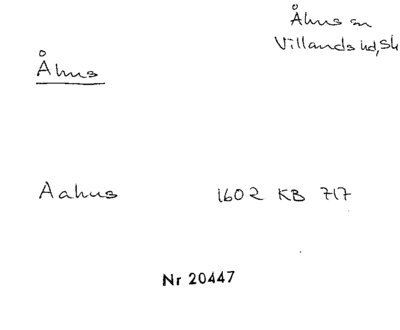 Åhus sn
Villands hd, Sk
Åhus
Aahus 1602 KB 717
Nr 20447